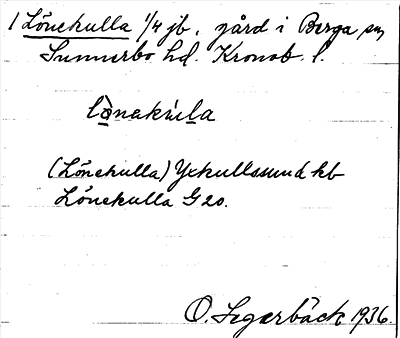 1 Lönekulla 1/4 jb. gård i Berga sn
Sunnerbo hd. Kronob. l.
lònekùla
(Lönekulla) Yxkullssund kb
Lönekulla G 20.
O. Segerbäck 1936.